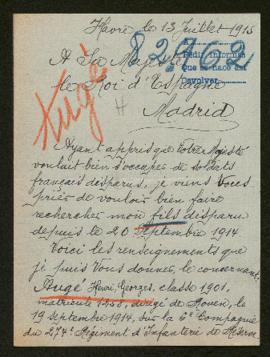 Havre le 13 Juillet 1915
82962
Pedir informes
Que se nace est
Devolver
A Sa Majesté
le Roi d'Espagne
Madrid
Augé
Ayant appris que Votre Majesté
voulait bien s'occuper de soldats
français disparus, je viens vous
prier de vouloir bien faire
rechercher mon fils disparu
depuis le 20 Septembre 1914
Voici les renseignements que
je puis vous donner, le concernant,
Augé Henri, Georges, classe 1901,
matricule 1258, dirigé de Rouen, le
19 septembre 1914, sur la 6e Compagnie
du 274e Régiment d'Infanterie de Réserve